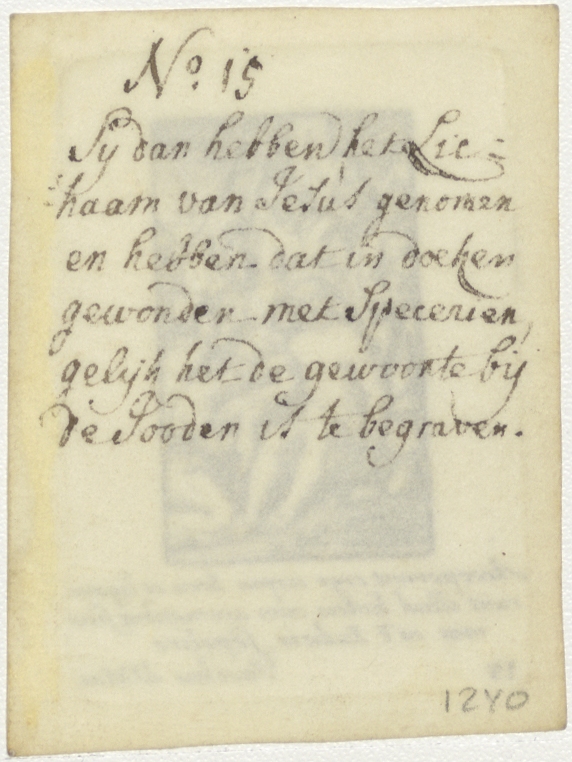 No. 15
Sij dan hebben het Lic=
haam van Jesus genomen
en hebben dat in doeken
gewonden met Speceriën,
gelijk het de gewoonte bij
de Jooden is te begraven.
1240